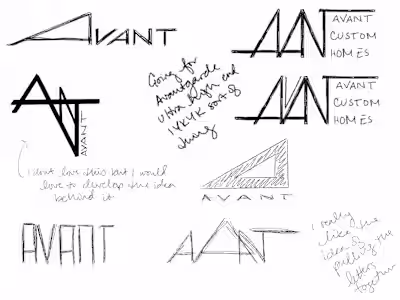 AVANT
AVANT
CUSTOM
HOMES
Going for
Avantgarde
ultra high end
sort of
thing
AVANT
CUSTOM
HOMES
AVANT
I dont love this but I would
love to develop the idea
behind it
AVANT
AVANT
AVANT
I really
like the
idea of
pulling the
letters
together